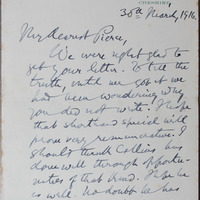 CHESHIRE.
30th March, 1916.
My dearest Pierce,
We were right glad to
get your letter. To tell the
truth, until we got it we
had been wondering why
you did not write. I hope
that short and special will
prove very remunerative. I
should think Collins has
done well through opportu-
nities of that kind. Hope he
is well. No doubt he has